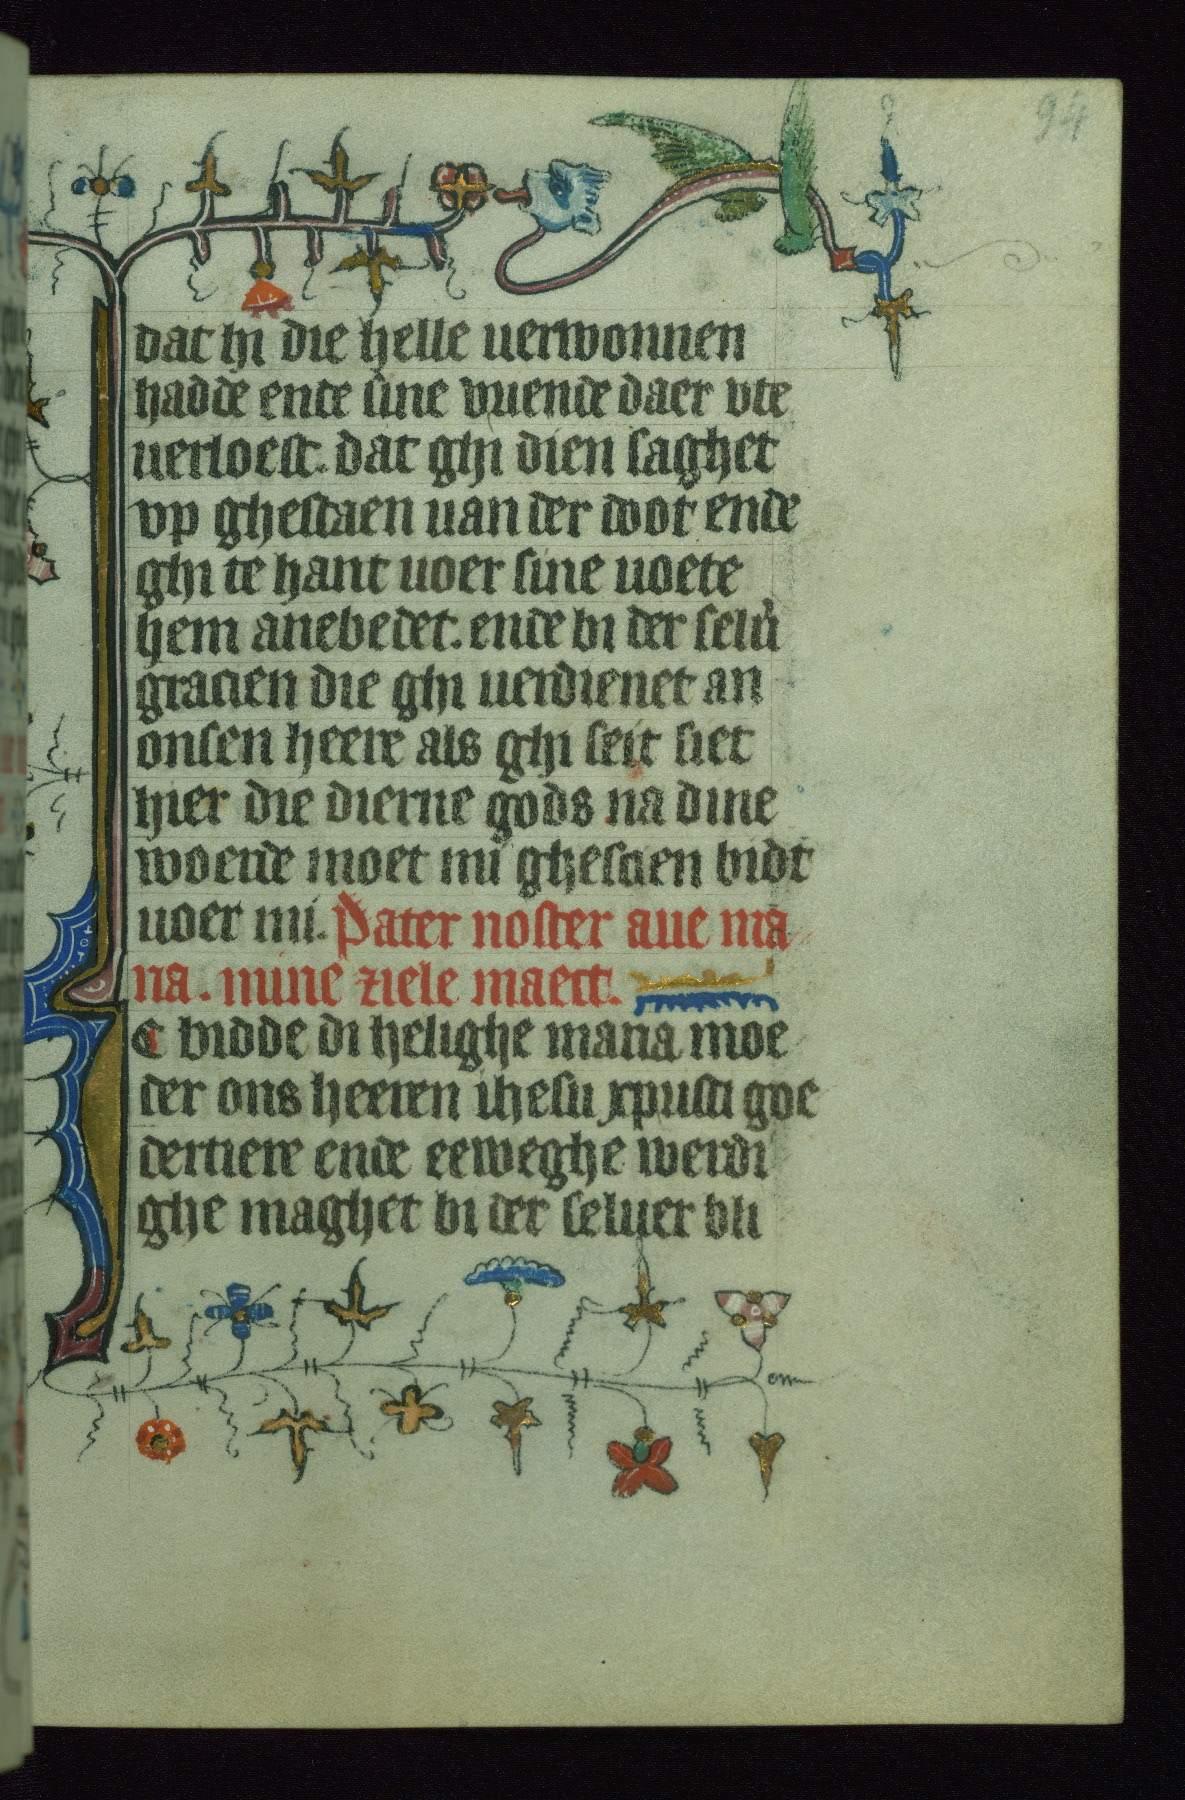 94
dat hi die helle uerwonnen
hadde ente sine vriende daer vte
uerloest. dat ghi dien saghet
vp ghestaen uan der doot ende
ghi te hant uoer sine uoete
hem anebedet. ende bi der selu̕
gracien die ghi uerdienet an
onsen heere als ghi seit siet
hier die dierne gods na dine
woerde moet mi ghescien bidt
uoer mi. Pater noster aue ma
ria. mine ziele maect.
c bidde di helighe maria moe
der ons heeren ihesu xpristi goe
dertiere ende eeweghe werdi
ghe maghet bi der seluer bli